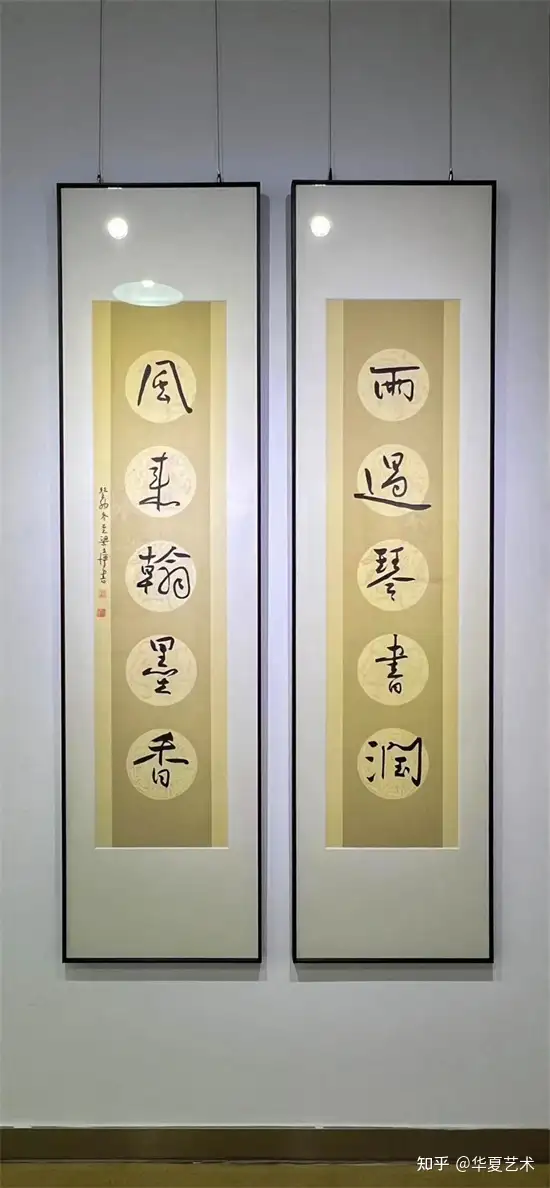 雨過琴書潤
風來翰墨香
癸卯冬
書
知乎 @华夏艺术